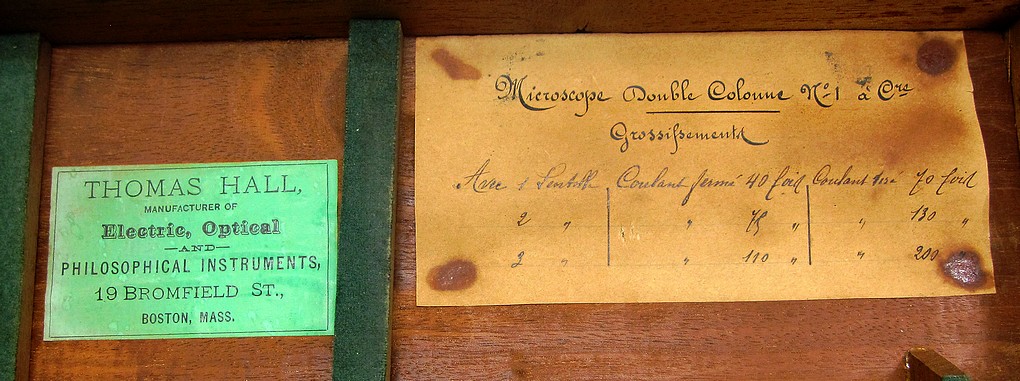 THOMAS HALL,
MANUFACTURER OF
Electric, Optical
—AND—
PHILOSOPHICAL INSTRUMENTS,
19 BROMFIELD ST.,
BOSTON, MASS.
Microscope Double Colonne No 1 à Cre
Grossissements
Avec 1 Lentille Coulant fermé 40 fois Coulant tiré 70 fois
2 " " 75 " " 130 "
3 " " 110 " " 200 "